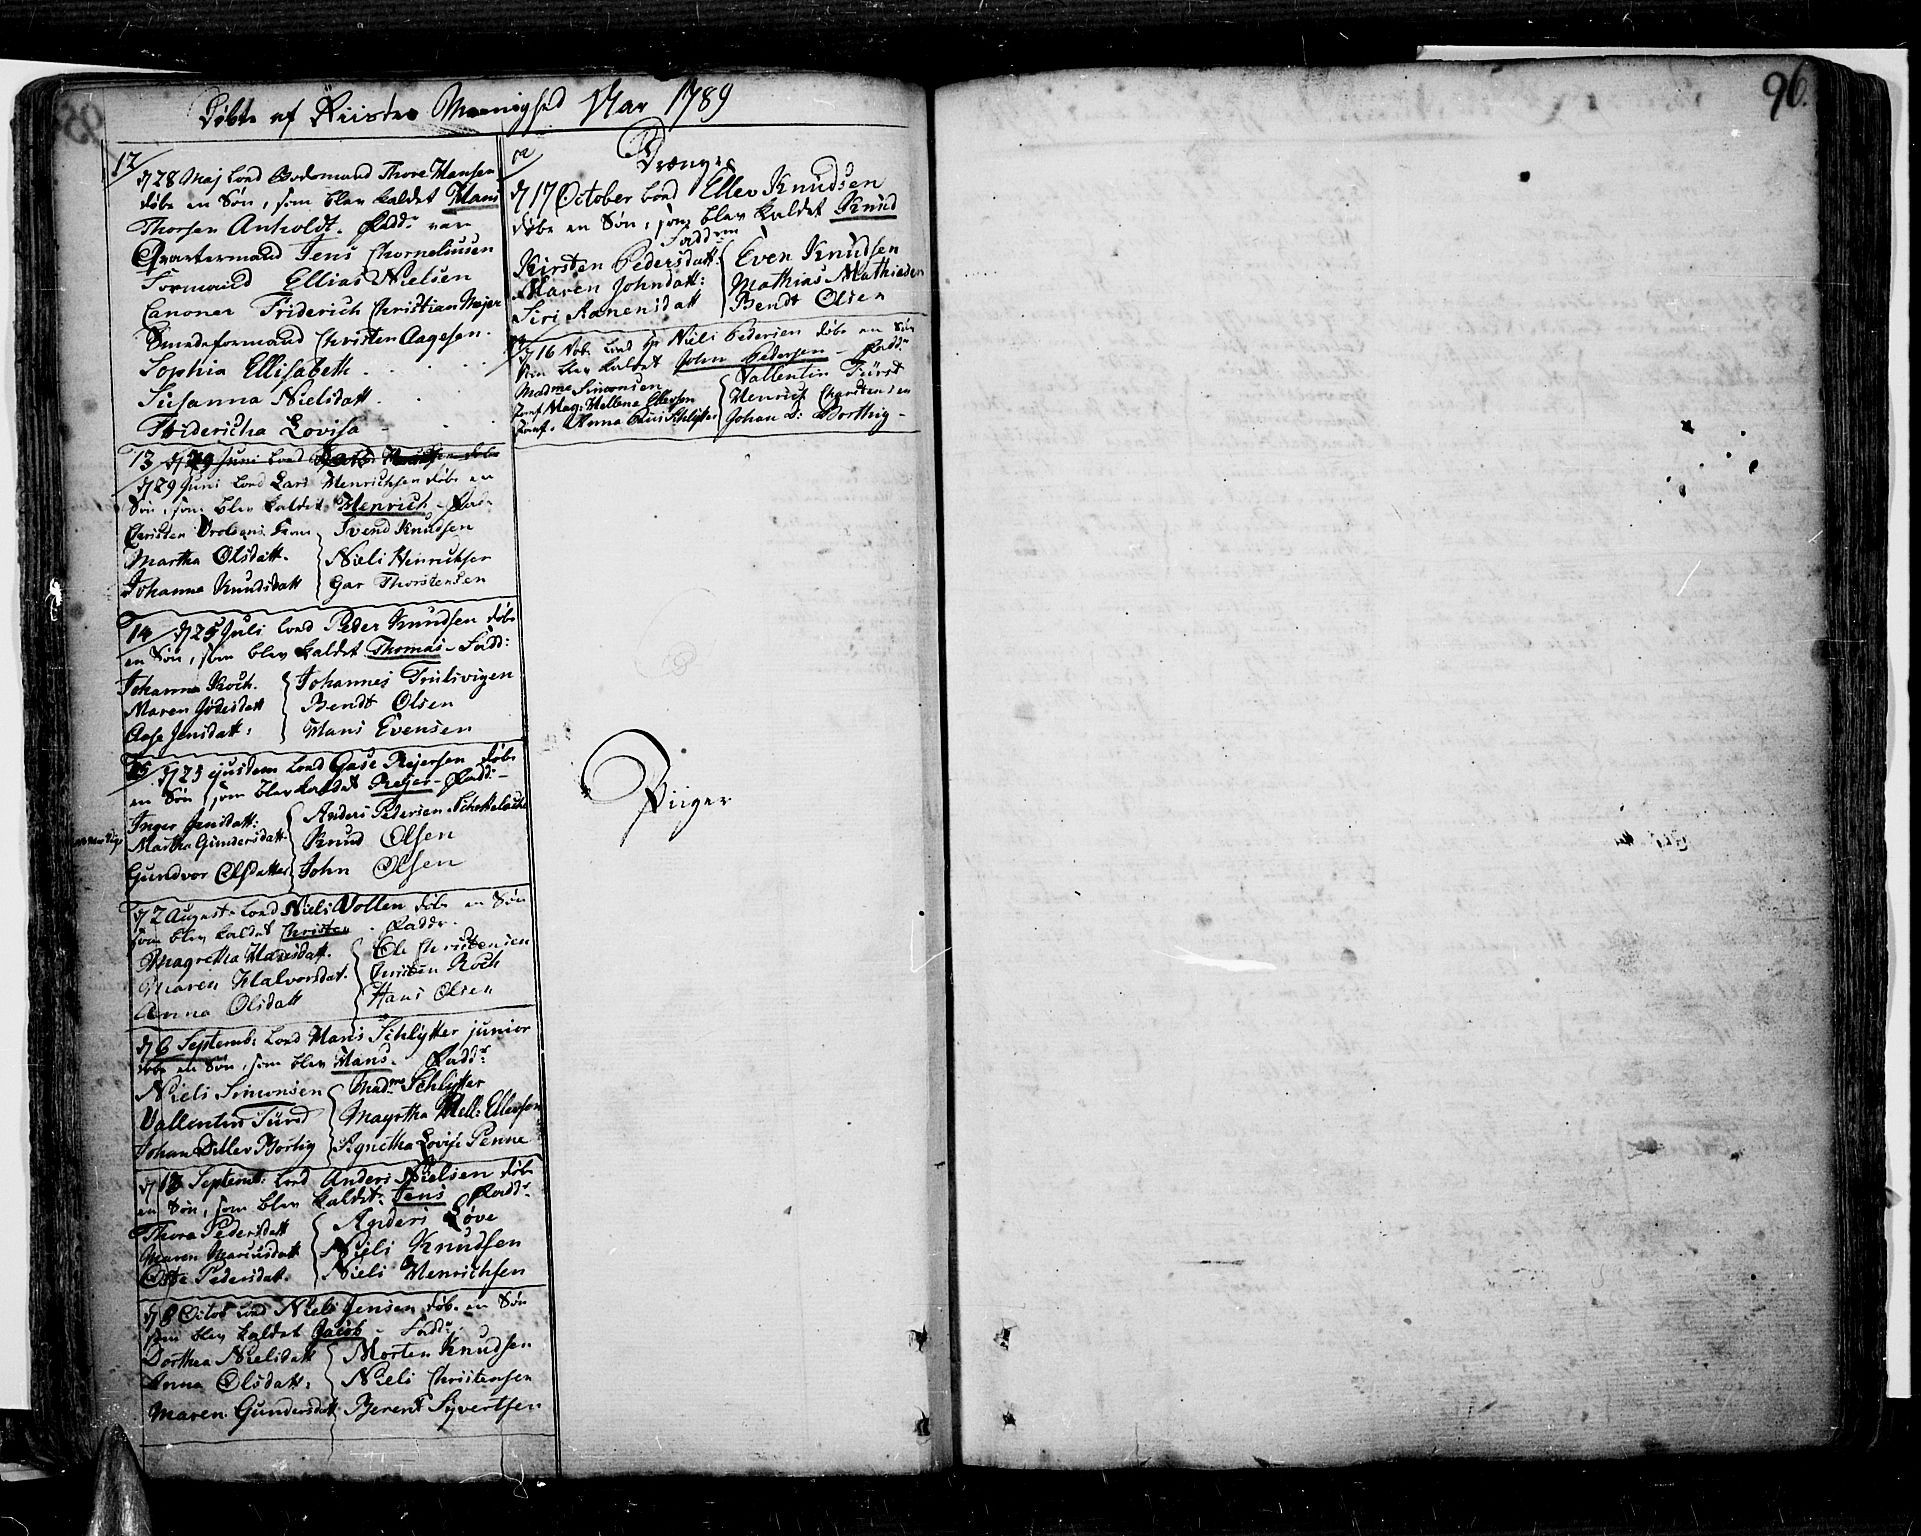 Döbte af Riisöer Meenighed Aar 1789
96.
12/
d 28 Maj lood Bodsmand Thore Hansen
döbe en Sön, som blev kaldet Hans
Thorsen Anholdt. Fadd: var
Qvartermand Jens Chorneliusen
Formand Ellias Nielsen
Canoner Friderich Christian Mejer
Smedeformand Christen Aagesen.
Sophia Ellisabeth
Susanna Nielsdatt.
Fridericha Lovisa
13 d 29 Juni lood
d 29 Juni lood Lars Henrichsen döbe en
Sön, som blev kaldet Henrich. Fadr
Christen Kone Svend Knudsen
Martha Olsdatt. Niels Henrichser
Johanna Knudsdatt Gar Thorstensen
14/ d 25 Juli lood Peder Knudsen döbe
en Sön, som blev kaldet Thomas. Fadd:
Johanna Koch. Johannes Trulsvigen
Maren Jödesdatt Bendt Olsen
Aase Jensdatt: Hans Evensen
15/ d 25 ejusdem lood Gase Rejersen döbe
en Sön, som blev kaldet Rejer. Fadd:
Inger Jensdatt: Anders Pedersen
Martha Gundersdatt. Knud Olsen
Gundvor Olsdatter John Olsen
d 2 August. lood Niels Vollen döbe en Sön
som blev kaldet Christen. Faddr.
Magretha Hansdatt. Ole Christensen
Maren Halvorsdat. Christen Koch
Anna Olsdatt Hans Olsen
d 6 Septemb: lood Hans Schlytter junior
döbe en Sön, som blev Hans. Fadd:
Niels Simonsen Madme Schlytter
Vallentin Fürst Magrtha Hell: Ellevsen
Johan Ditlev Bortig Agnetha Lovise Penne
d 13 Septemb: lood Anders Nielsen döbe
en Sön, som blev kaldet Jens Fadd:
Thora Pedersdatt Anders Löve
Maren Marcusdatt Niels Knudsen
Pedersdatt. Niels Henrichsen
d 8 Octob lood Niels Jensen döbe en Sön
som blev kaldet Jacob. Fadd:
Dorthea Nielsdatt Morten Knudsen
Anna Olsdatt: Niels Christensen
Maren Gundersdatt Berent Syvertsen
Drænge
d 17 October lood Ellev Knudsen
döbe en Sön, som blev kaldet Knud
Faddrne
Kirsten Pedersdatt: Even Knudsen
Maren Johndatt: Mathias Mathiesen
Siri Aanensdatt Bendt Olsen
d 16 Nob: lood Hr Niels Pedersen döbe en Sön
som blev kaldet John Pedersen. Fadd:
Madme Simonsen Vallentin Fürst
Jomf. Mag: Hellena Ellevsen Henrich Charstensen
Jomf. Anna Schlytter Johan D: Borthig
Piiger